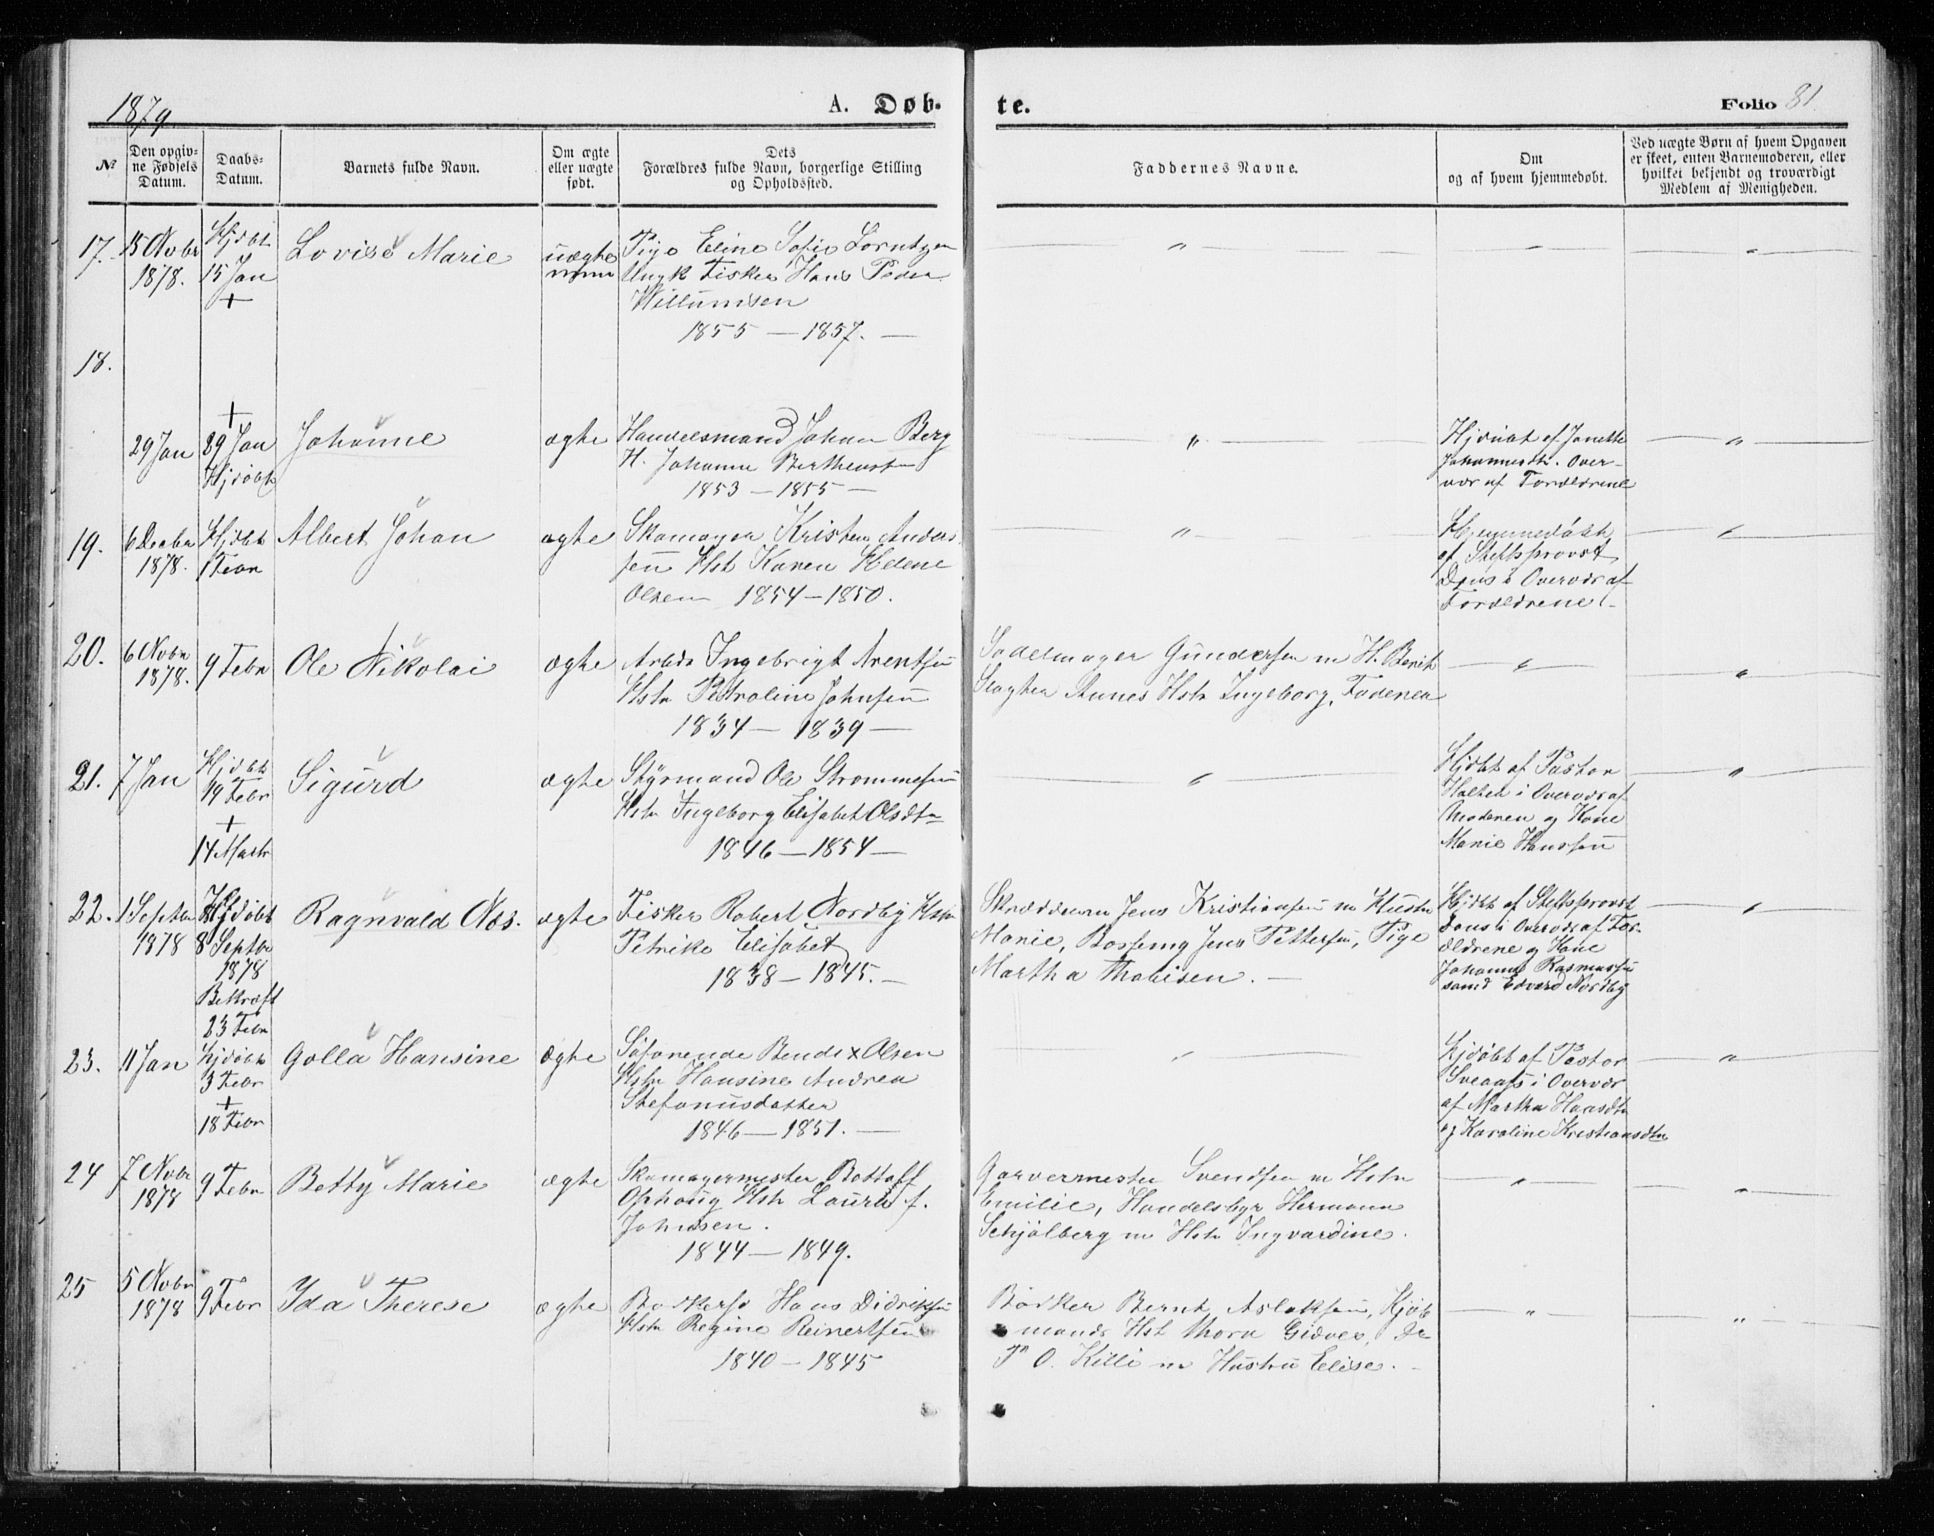 1879
A. Døb-
te.
Folio 81
№
Den opgiv-
ne Fødsels
Datum.
Daabs-
Datum.
Barnets fulde Navn.
Om ægte
eller uægte
født.
Dets
Forældres fulde Navn, borgerlige Stilling
og Opholdssted.
Faddernes Navne.
Om
og af hvem hjemmedøbt.
Ved uægte Børn af hvem Opgaven
er skeet, enten Barnemoderen, eller
hvilket bekjendt og troværdigt
Medlem af Menigheden.
17. 15 Novbr
1878.
Hjdbt
15 Jan
+
Lovise Marie
uægte
Pige Eline Sofie Lorntzen
Ungk Fisker Hans Peder
Willumsen
1855 — 1857. —
18.
29 Jan
+
29 Jan
Hjdøbt
Johanne
ægte
Handelsmand Johan Berg
H. Johanna
1853 — 1855 —
af Janette
Johannesdtr. Over-
vær af Forældrene
19. 6 Decbr
1878.
Hjdbt
1 Febr
Albert Johan
ægte
Skomager Kristen Anders
sen Hst Karen Helene
Olsen 1854 — 1850.
Hjemmedøbt
af Stiftsprovst
i Overvær af
Forældrene.
20. 6 Novbr
1878.
9 Febr
Ole Nikolai
ægte
Arbdr Ingebrigt Arentsen
Hstr Petroline Johnsen
1834 — 1839 —
Sadelmager Gundersen m H. Berit
Slagter Hstr Ingeborg, Faderen
21. 7 Jan
Hjdbt
19 Febr
+
14 Marts
Sigurd
ægte
Styrmand Ole Strommesen
Hstr Ingeborg Elisabet Olsdtr
1846 — 1854 —
Hjdbt af Pastor
i Overvær af
Moderen og Kone
Marie Hanssen
22. 1 Septbr
1878
Hjdøbt
8 Septbr
1878
Bekræft
23 Febr
Ragnvald Næs.
ægte
Fisker Robert Nordby Hstr
Petrike Elisabet
1838 — 1845. —
Skrædderm Jens Kristiansen m Hustr
Marie, Jens Pettersen, Pige
Martha Thobisen. —
Hjdbt af Stiftsprovst
i Overvær af For-
ældrene og Kone
Johanne Rasmussen
samt Edvard Nordby
23. 11 Jan
Hjdøbt
3 Febr
+
18 Febr
Golla Hansine
ægte
Søfarende Bendix Olsen
Hstr Hansine Andrea
Stefanusdatter
1846 — 1851. —
Hjdøbt af Pastor
i Overvær
af Martha Hansdtr
og Karoline Kristiansdtr
24 7 Novbr
1878
9 Febr
Betty Marie
ægte
Skomagermester
Ophaug Hstr Laura f.
Johnsen.
1844 — 1849.
Garvermester Svendsen m Hstr
Emilie, Handelsbgr Hermann
Schjølberg m Hstr Ingvardine.
25 5 Novbr
1878
9 Febr
Ida Therese
ægte
Hans Didriksen
Hstr Regine Reinertsen
1840 — 1845
Bødker Bernt Aslaksen, Kjøb
mands Hst Thora Gidver,
O. Killi m Hustru Elise. —